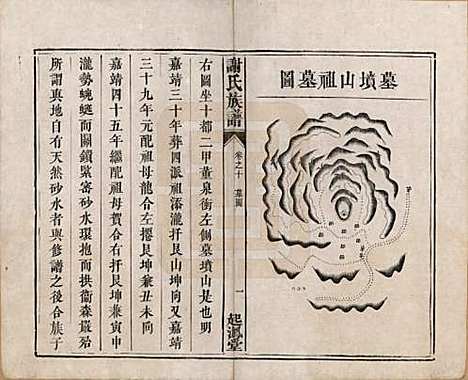 墓墳山祖墓圖
謝氏族譜
卷之十 墓圖
一
起渢堂
右圖坐十都二甲董泉衝左側墓墳山是也明
嘉靖三十年葬四派祖添瀧扦艮山坤向又嘉靖
三十九年元配祖母龍合左攞艮坤兼丑未向
嘉靖四十五年繼配祖母賀合右扦艮坤兼寅申
瀧勢蜿蜒而關鎖緊密砂水環抱而拱衛森嚴殆
所謂輿地自有天然砂水者與修譜之後合族子